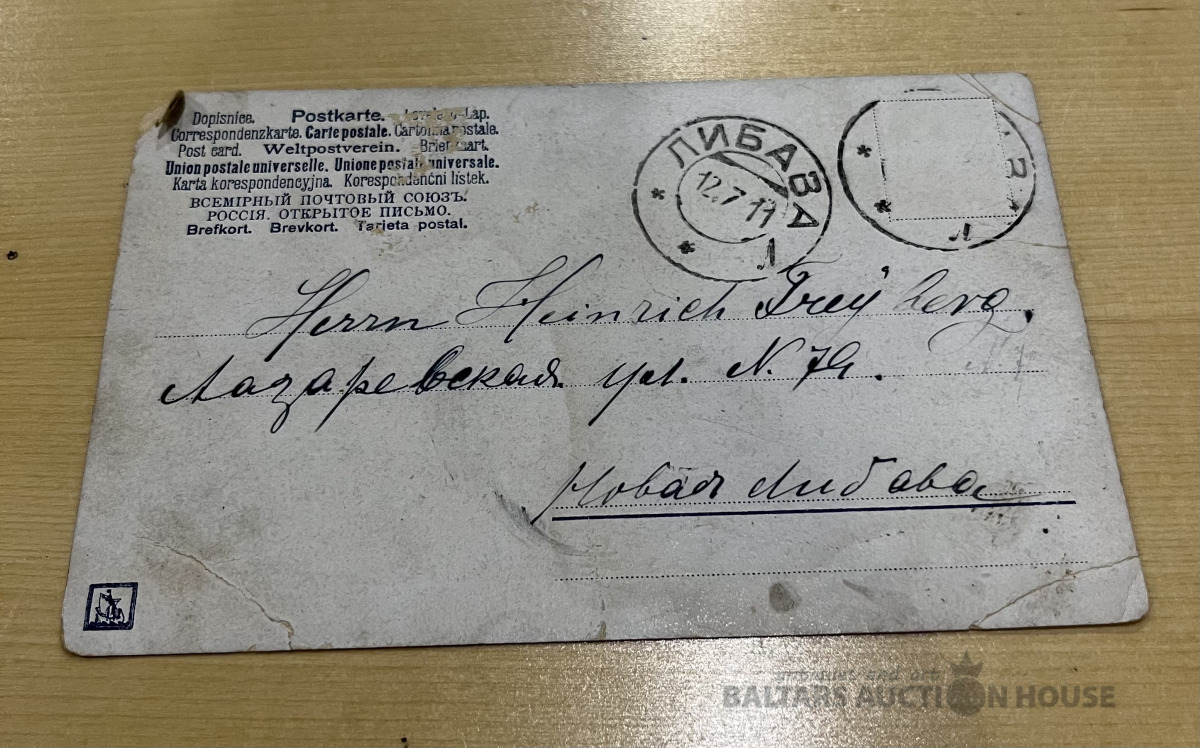 Dopisnice. Postkarte. Levelező-Lap.
Correspondenzkarte. Carte postale. Cartolina postale.
Post card. Weltpostverein. Briefkaart.
Union postale universelle. Unione postale universale.
Karta korespondencyjna. Korespondenční lístek.
ВСЕМІРНЫЙ ПОЧТОВЫЙ СОЮЗЪ.
РОССІЯ. ОТКРЫТОЕ ПИСЬМО.
Brefkort. Brevkort. Tarjeta postal.
ЛИБАВА
12.7.11
Л
Л
Herrn Heinrich Freyberg.
Лазаревская ул. N. 79.
Новая Либава
antiques and art
BALTARS AUCTION HOUSE